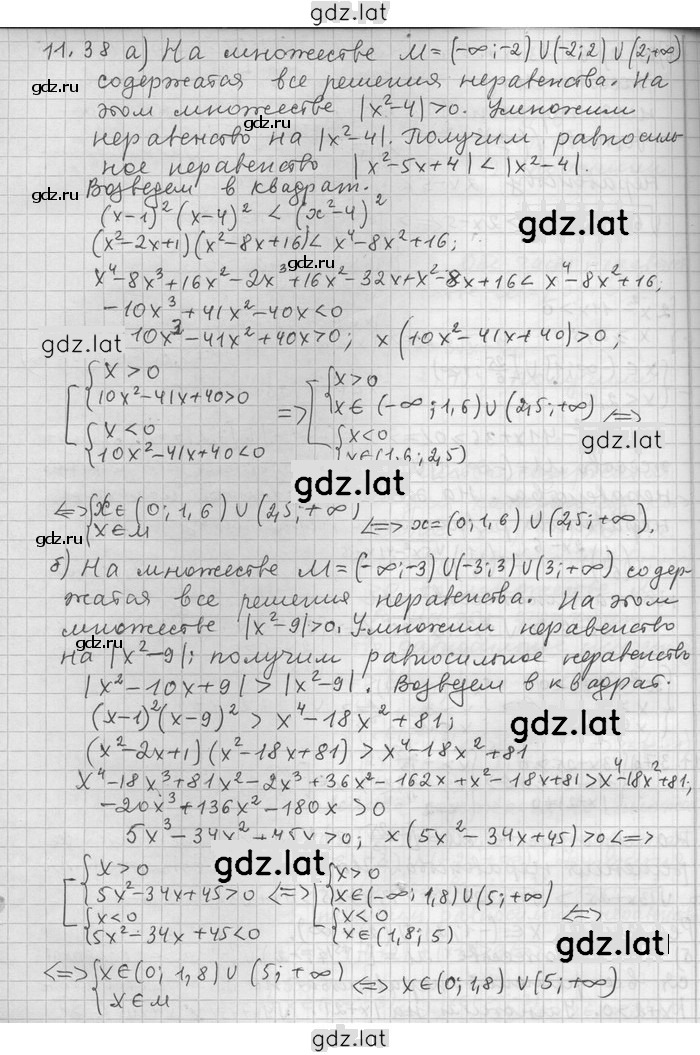 gdz.lat
11.38 а) На множестве M=(-∞;-2)∪(-2;2)∪(2;+∞)
содержатся все решения неравенства. На
этом множестве |x²-4|>0. Умножим
неравенство на |x²-4|. Получим равносиль-
ное неравенство |x²-5x+4|<|x²-4|.
Возведем в квадрат.
(x-1)²(x-4)² < (x²-4)²
(x²-2x+1)(x²-8x+16)< x⁴-8x²+16;
x⁴-8x³+16x²-2x³+16x²-32x+x²-8x+16< x⁴-8x²+16;
-10x³+41x²-40x<0
10x³-41x²+40x>0; x(10x²-41x+40)>0;
[{x>0
{10x²-41x+40>0
{x<0
{10x²-41x+40<0
=> [{x>0
{x∈(-∞;1,6)∪(2,5;+∞)
{x<0
{x∈(1,6;2,5)
<=>
<=>{x∈(0;1,6)∪(2,5;+∞)
{x∈M
<=> x=(0;1,6)∪(2,5;+∞).
б) На множестве M=(-∞;-3)∪(-3;3)∪(3;+∞) содер-
жатся все решения неравенства. На этом
множестве |x²-9|>0. Умножим неравенство
на |x²-9|; получим равносильное неравенство
|x²-10x+9|>|x²-9|. Возведем в квадрат.
(x-1)²(x-9)² > x⁴-18x²+81;
(x²-2x+1)(x²-18x+81)>x⁴-18x²+81
x⁴-18x³+81x²-2x³+36x²-162x+x²-18x+81>x⁴-18x²+81;
-20x³+136x²-180x>0
5x³-34x²+45x>0; x(5x²-34x+45)>0<=>
[{x>0
{5x²-34x+45>0
{x<0
{5x²-34x+45<0
<=> [{x>0
{x∈(-∞;1,8)∪(5;+∞)
{x<0
{x∈(1,8;5)
<=>
<=>{x∈(0;1,8)∪(5;+∞)
{x∈M
<=> x∈(0;1,8)∪(5;+∞)
gdz.ru
gdz.ru
gdz.ru
gdz.lat
gdz.ru
gdz.lat
gdz.lat
gdz.lat
gdz.ru
gdz.ru
gdz.lat
gdz.lat
gdz.lat
gdz.lat